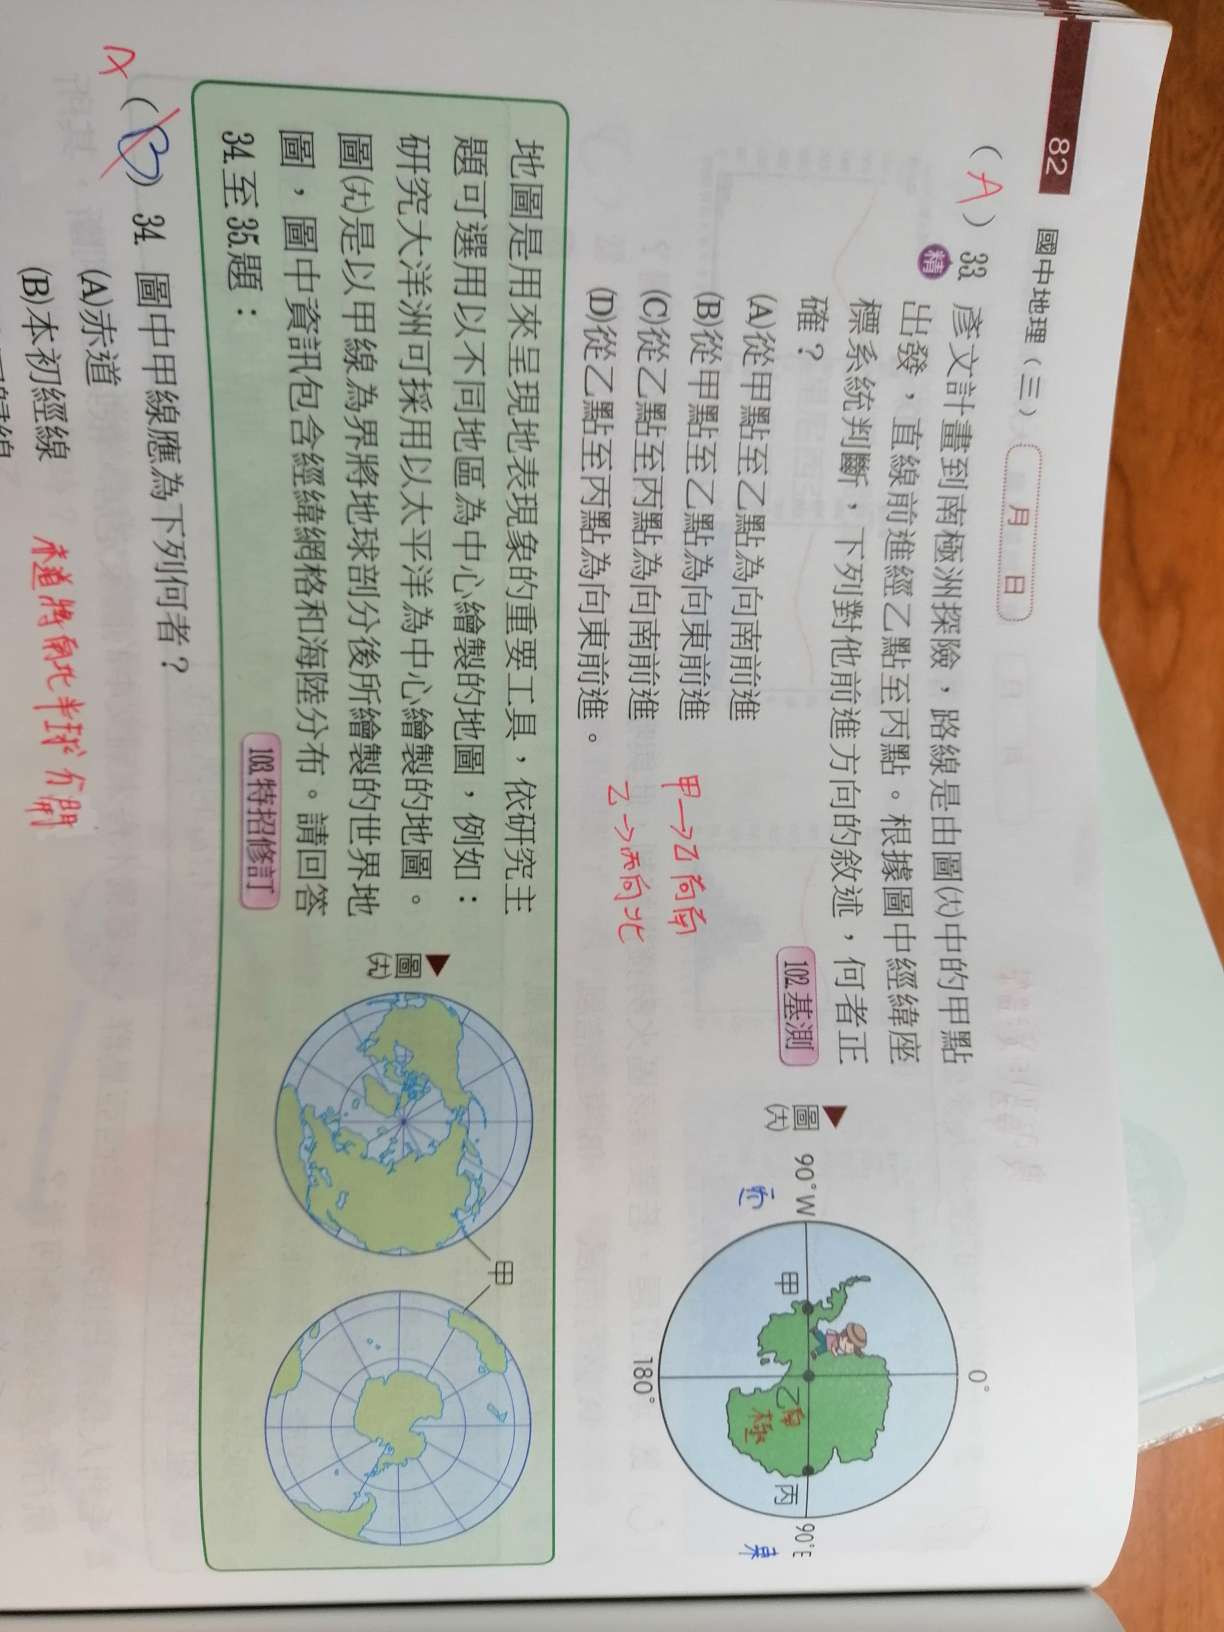 82 國中地理(三) 月 日
(A) 33. 彥文計畫到南極洲探險，路線是由圖(六)中的甲點
精 出發，直線前進經乙點至丙點。根據圖中經緯座
標系統判斷，下列對他前進方向的敘述，何者正
確？ 102.基測
(A)從甲點至乙點為向南前進
(B)從甲點至乙點為向東前進
(C)從乙點至丙點為向南前進
(D)從乙點至丙點為向東前進。
甲→乙向南
乙→丙向北
▲圖(六)
0°
90°W
甲
乙
南極
丙
90°E
東
180°
地圖是用來呈現地表現象的重要工具，依研究主
題可選用以不同地區為中心繪製的地圖，例如：
研究大洋洲可採用以太平洋為中心繪製的地圖。
圖(九)是以甲線為界將地球剖分後所繪製的世界地
圖，圖中資訊包含經緯網格和海陸分布。請回答
34.至35.題： 103.特招修訂
▲圖(九)
甲
A (B) 34. 圖中甲線應為下列何者？
(A)赤道
(B)本初經線
赤道將南北半球分開